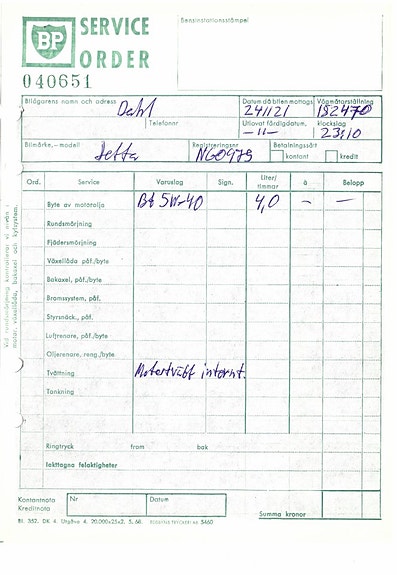 BP SERVICE ORDER
Bensinstationsstämpel
040651
Bilägarens namn och adress
Dahl
Telefonnr
Datum då bilen mottogs
241121
Vägmätarställning
182470
Utlovat färdigdatum,
-11-
klockslag
23:10
Bilmärke, – modell
Jetta
Registreringsnr
NGO979
Betalningssätt
kontant kredit
Ord. Service Varuslag Sign. Liter/timmar à Belopp
Byte av motorolja 5W-40 4,0 – –
Rundsmörjning
Fjädersmörjning
Växellåda påf./byte
Bakaxel, påf./byte
Bromssystem, påf.
Styrsnäck., påf.
Luftrenare, påf./byte
Oljerenare, reng./byte
Tvättning Motortvätt internt.
Tankning
Ringtryck fram bak
Iakttagna felaktigheter
Kontantnota
Kreditnota
Nr
Datum
Summa kronor
Bl. 352. DK 4. Utgåva 4. 20.000x25x2. 5. 68.
3460
Vid rundsmörjning kontrolleras vi oljan i
motor, växellåda, bakaxel och kylsystem.